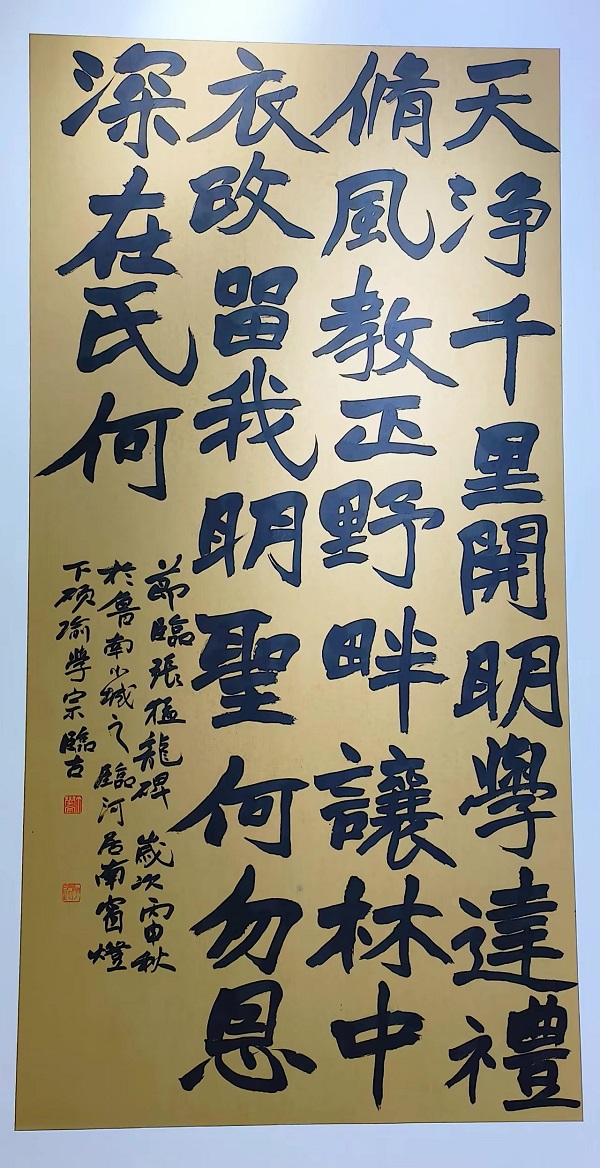 天浄千里開明學達禮
脩風教正野畔讓林中
衣改留我明聖何勿恩
深在民何
節臨張猛龍碑 歲次丙申秋
於魯南小城之臨河居南窗燈
下碩瑜學宗臨古